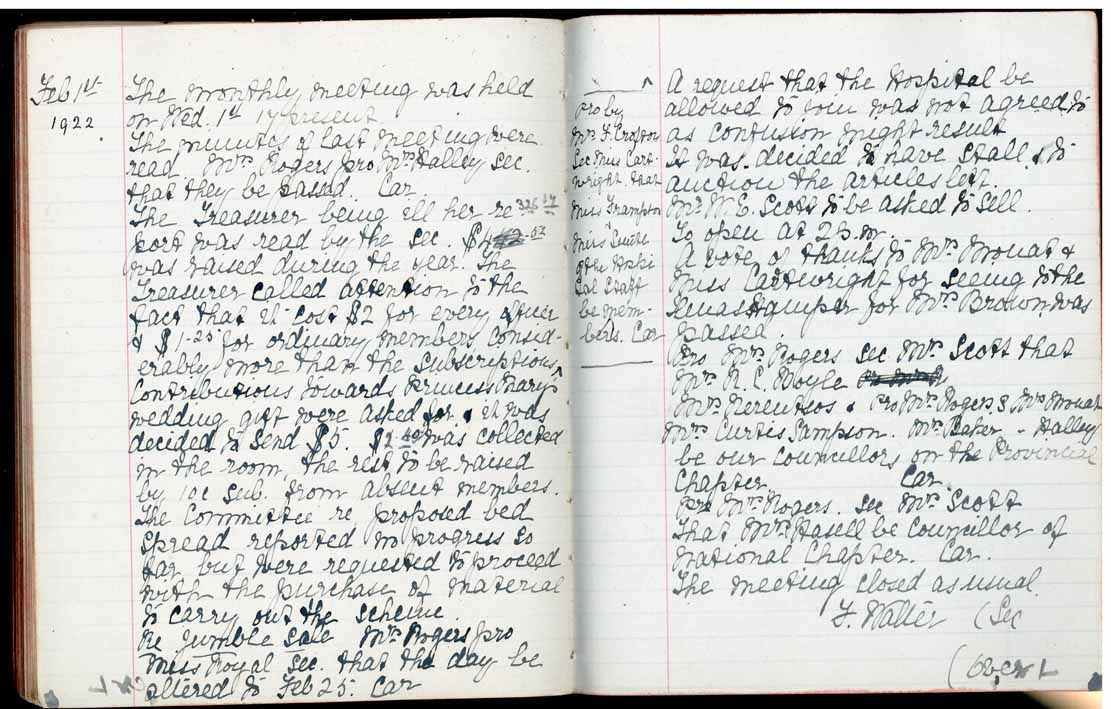 Feb 1st
1922.
The monthly meeting was held
on Wed. 1st 17 present.
The minutes of last meeting were
read Mrs Rogers pro Mrs Halley sec.
that they be passed. Car.
The Treasurer being ill her re-
port was read by the Sec. $
was raised during the year. The
Treasurer called attention to the
fact that it cost $2 for every officer
& $1.25 for ordinary members consid-
erably more than the subscriptions ^
Contributions towards Princess Mary's
wedding gift were asked for & it was
decided to send $5. $2.40 was collected
in the room the rest to be raised
by 10c sub. from absent members.
The Committee re proposed bed
spread reported in progress so
far but were requested to proceed
with the purchase of material
to carry out the scheme.
Re Jumble Sale Mrs Rogers pro
Miss Royal Sec. that the day be
altered to Feb 25. Car
^
Pro by
Mrs F. Crofton
Sec. Miss Cart-
wright. that
Miss Frampton
Miss Smith
of the Hospi
tal Staff
be mem-
bers. Car
A request that the Hospital be
allowed to join was not agreed to
as confusion might result
It was decided to have stall & to
auction the articles left.
Mr. W. E. Scott to be asked to sell.
To open at 2 P.m.
A vote of thanks to Mrs Mouat &
Miss Cartwright for seeing to the
Xmas Hamper for Mrs Brown was
passed.
Pro Mrs Rogers Sec Mrs Scott that
Mrs R. C. Boyle
Mrs Nerentsos & Pro Mrs Rogers S Mrs Mouat
Mrs Curtis Sampson. Mrs Baker - Halley
be our Councillors on the Provincial
Chapter. Car.
Pro Mrs Rogers. Sec Mrs Scott
That Mrs Hasell be Councillor of
National Chapter. Car.
The meeting closed as usual.
F. Walter (Sec